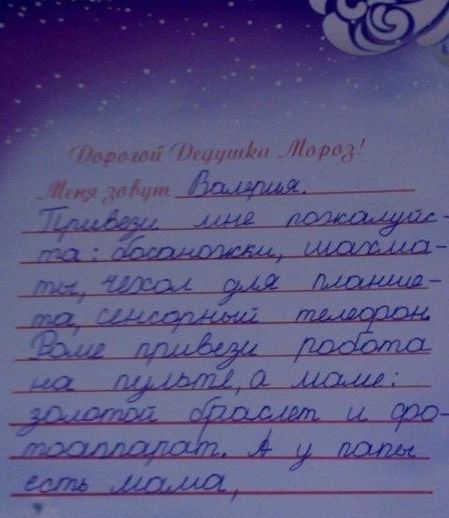 Дорогой Дедушка Мороз!
Меня зовут Валерия.
Привези мне пожалуйс-
та: босоножки, шахма-
ты, чехол для планше-
та, сенсорный телефон.
Роме привези робота
на пульте, а маме:
золотой браслет и фо-
тоаппарат. А у папы
есть мама,